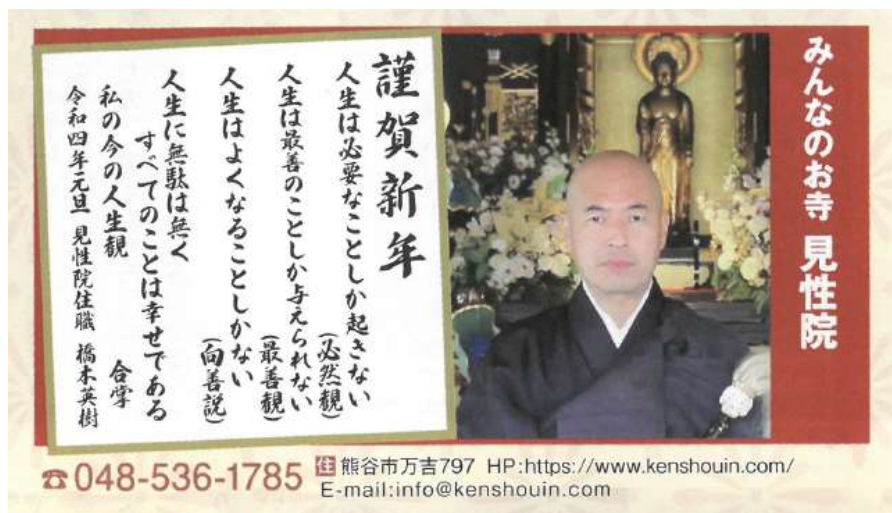 みんなのお寺 見性院
謹賀新年
人生は必要なことしか起きない
(必然観)
人生は最善のことしか与えられない
(最善観)
人生はよくなることしかない
(向善説)
人生に無駄は無く
すべてのことは幸せである
私の今の人生観
合掌
令和四年元旦 見性院住職 橋本英樹
☎048-536-1785
住 熊谷市万吉797 HP:https://www.kenshouin.com/
E-mail:info@kenshouin.com